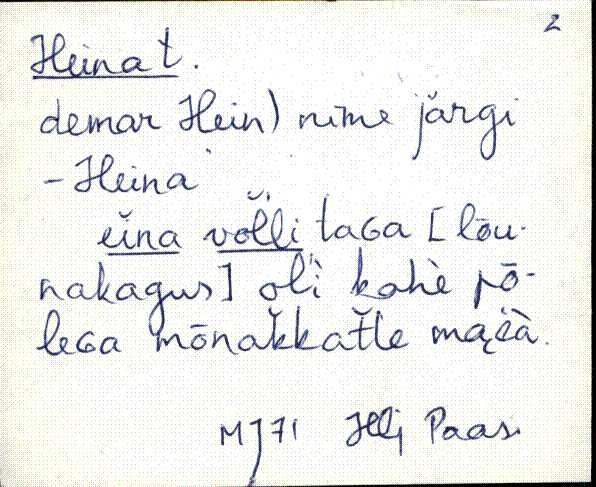 2
Heina t.
demar Hein) nime järgi
- Heina
eina völli taGa [lõu-
nakagus] oli kahè pō-
leGa mōnakkatle mačà.
MJ71 Illi Paas.